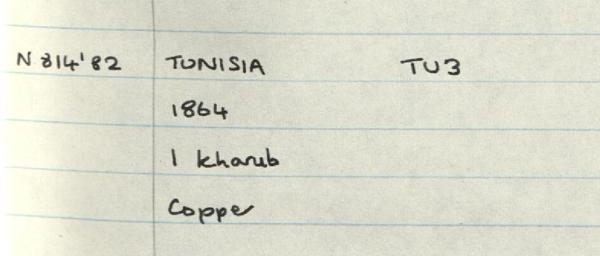 N 814'82 TUNISIA TU3
1864
1 kharub
Copper